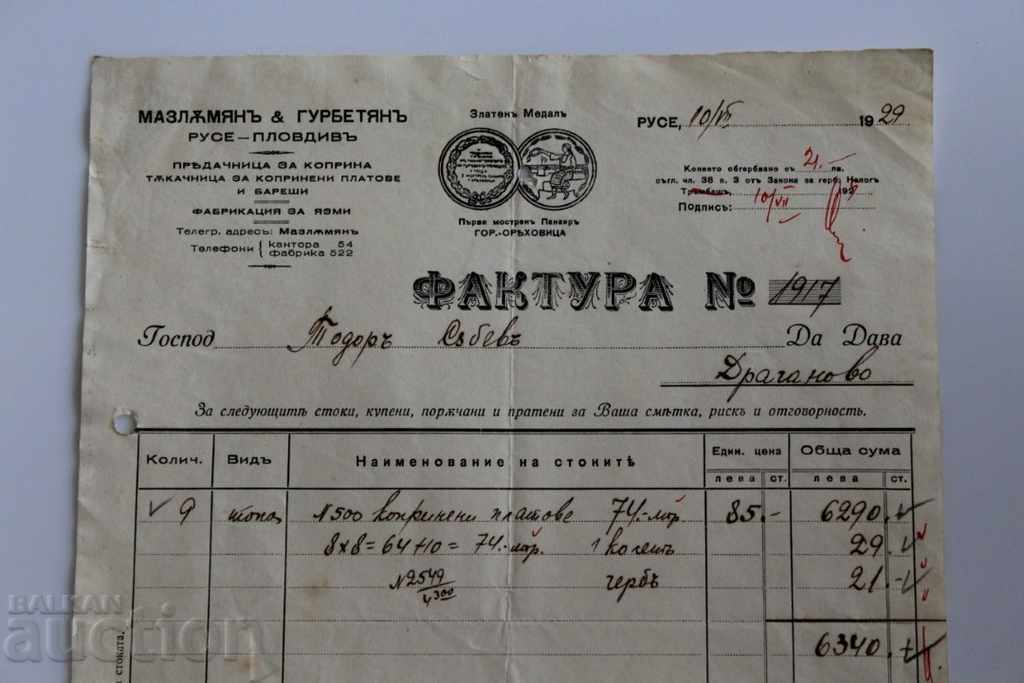 МАЗЛѪМЯНЪ & ГУРБЕТЯНЪ
РУСЕ–ПЛОВДИВЪ
ПРѢДАЧНИЦА ЗА КОПРИНА
ТѪКАЧНИЦА ЗА КОПРИНЕНИ ПЛАТОВЕ
И БАРЕШИ
ФАБРИКАЦИЯ ЗА ЯЗМИ
Телегр. адресъ: Мазлѫмянъ
Телефони { кантора 54
фабрика 522
Златенъ Медалъ
Първи мостренъ Панаиръ
ГОР.-ОРѢХОВИЦА
РУСЕ, 10/VII 1929
Копието обгербвано съ 21.- лв.
съгл. чл. 38 п. 3 отъ Закона за герб. Налог
10/VII 192
Подпись:
ФАКТУРА № 1917
Господ Тодоръ Събевъ Да Дава
Драганово
За следующитѣ стоки, купени, порѫчани и пратени за Ваша смѣтка, рискъ и отговорность.
Колич. Видъ Наименование на стокитѣ Един. цена Обща сума
лева ст. лева ст.
9 топа N500 копринени платове 74.- мтр. 85.- 6290.-
8x8=64+10=74.- мтр. 1 колетъ 29.-
N2549/4300 гербъ 21.-
6340.-
стоката.
BALKAN
auction